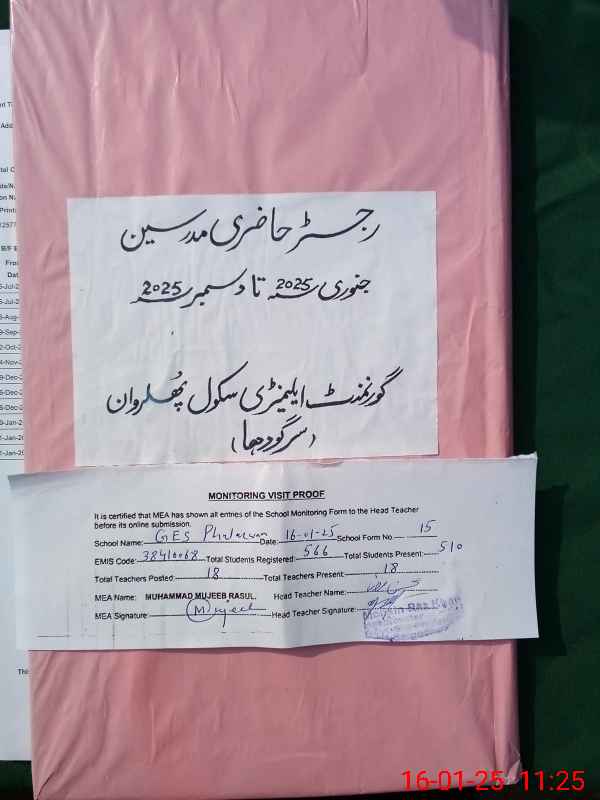 رجسٹر حاضری مدرسین
جنوری 2025 تا دسمبر 2025
گورنمنٹ ایلیمنٹری سکول پھلروان
(سرگودھا)
MONITORING VISIT PROOF
It is certified that MEA has shown all entries of the School Monitoring Form to the Head Teacher
before its online submission.
School Name: GES Phularwan Date: 16-01-25 School Form No. 15
EMIS Code: 38410068 Total Students Registered: 566 Total Students Present: 510
Total Teachers Posted: 18 Total Teachers Present: 18
MEA Name: MUHAMMAD MUJEEB RASUL. Head Teacher Name:
MEA Signature: Mujeeb Head Teacher Signature:
16-01-25 11:25